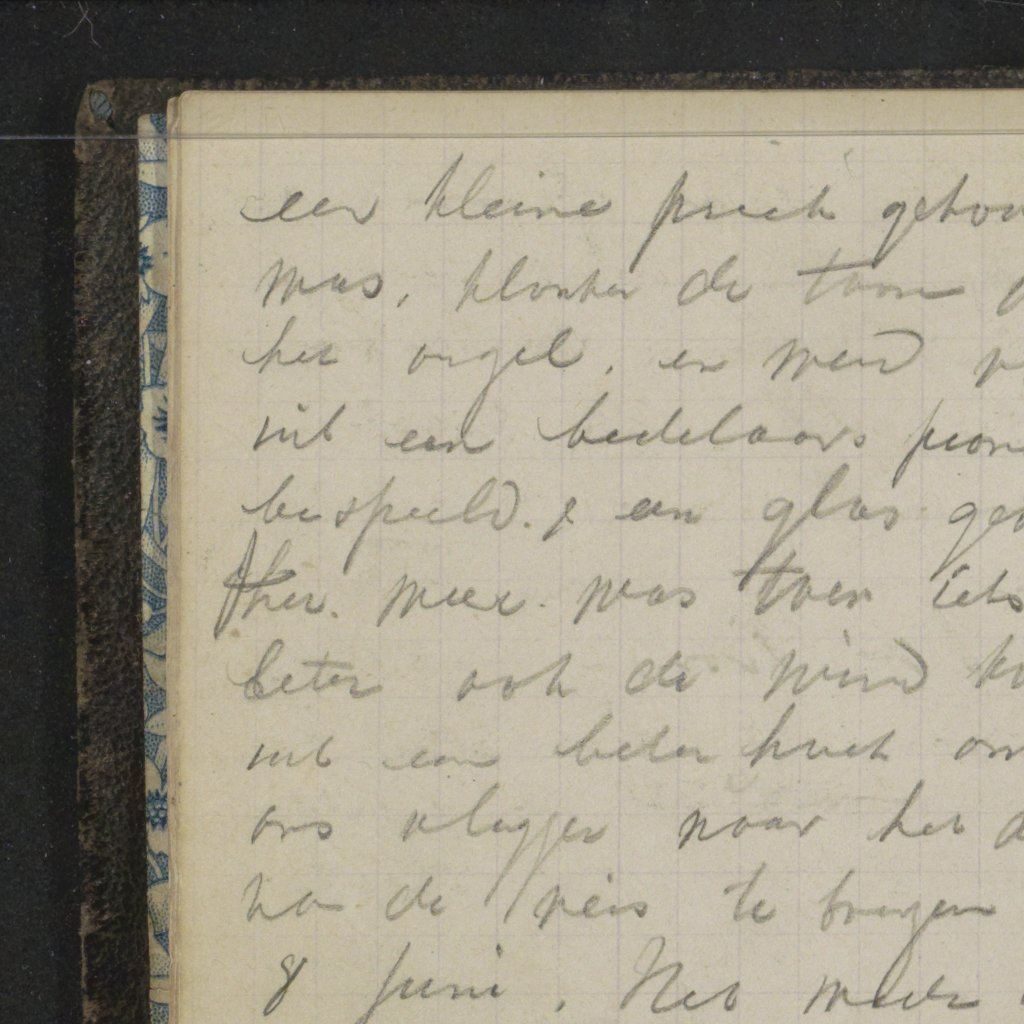 een kleine preek gehou
was, klonken de toon
het orgel, en werd
uit een bedelaars
bespeeld. & een glas
het. weer. was toen iets
beter ook de wind
uit een beter hoek om
ons vlugger naar het
van de reis te brengen
8 Juni. Het weder